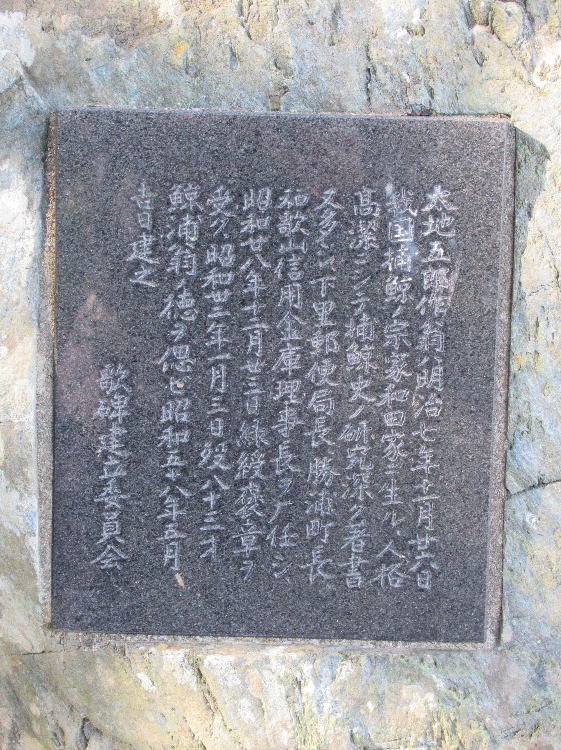 太地五郎作翁ハ明治七年十一月廿六日
戦国捕鯨ノ宗家和田家ニ生ル、人格
高潔ニシテ捕鯨史ノ研究深ク著書
又多シ、下里郵便局長、勝浦町長
和歌山信用金庫理事長ヲ歴任シ、
昭和廿八年十一月廿三日緑綬褒章ヲ
受ク、昭和卅二年一月三日歿八十三才
鯨浦翁ノ徳ヲ偲ビ昭和五十八年五月
吉日建之
歌碑建立委員会